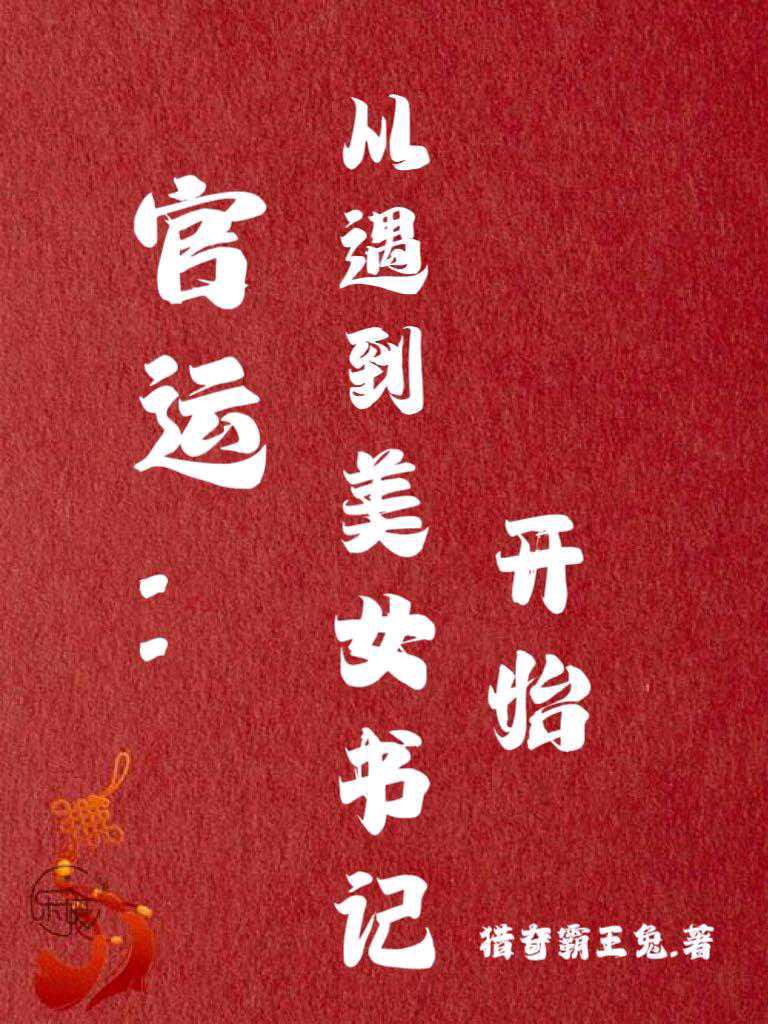 官运：
从遇到美女书记
开始
猎奇霸王兔.著